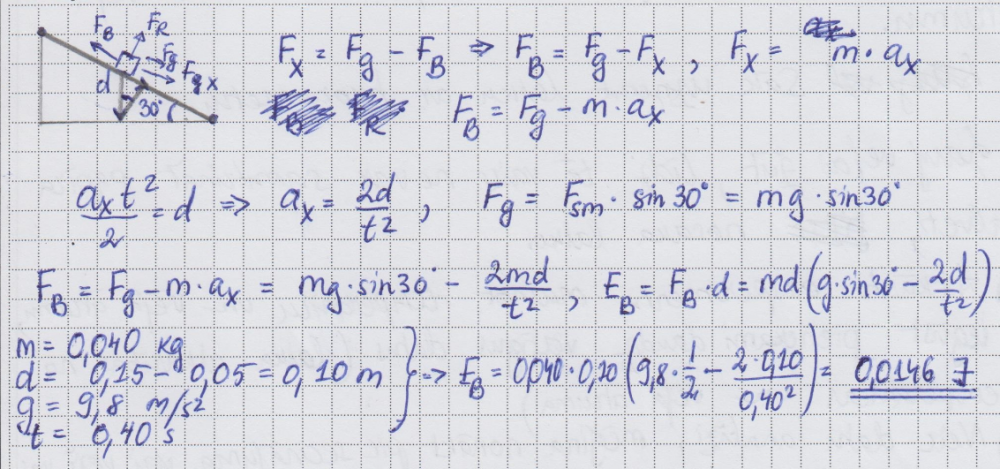 F_B F_R F_g F_x d 30°
F_x = F_g - F_B ⇒ F_B = F_g - F_x , F_x = m · a_x
F_B = F_g - m · a_x
a_x t²/2 = d ⇒ a_x = 2d/t² , F_g = F_sm · sin 30° = mg · sin 30°
F_B = F_g - m · a_x = mg · sin 30° - 2md/t² , E_B = F_B · d = md (g · sin 30° - 2d/t²)
m = 0,040 kg
d = 0,15 - 0,05 = 0,10 m
g = 9,8 m/s²
t = 0,40 s
⇒ E_B = 0,040 · 0,10 (9,8 · 1/2 - 2 · 0,10/0,40²) = 0,0146 J